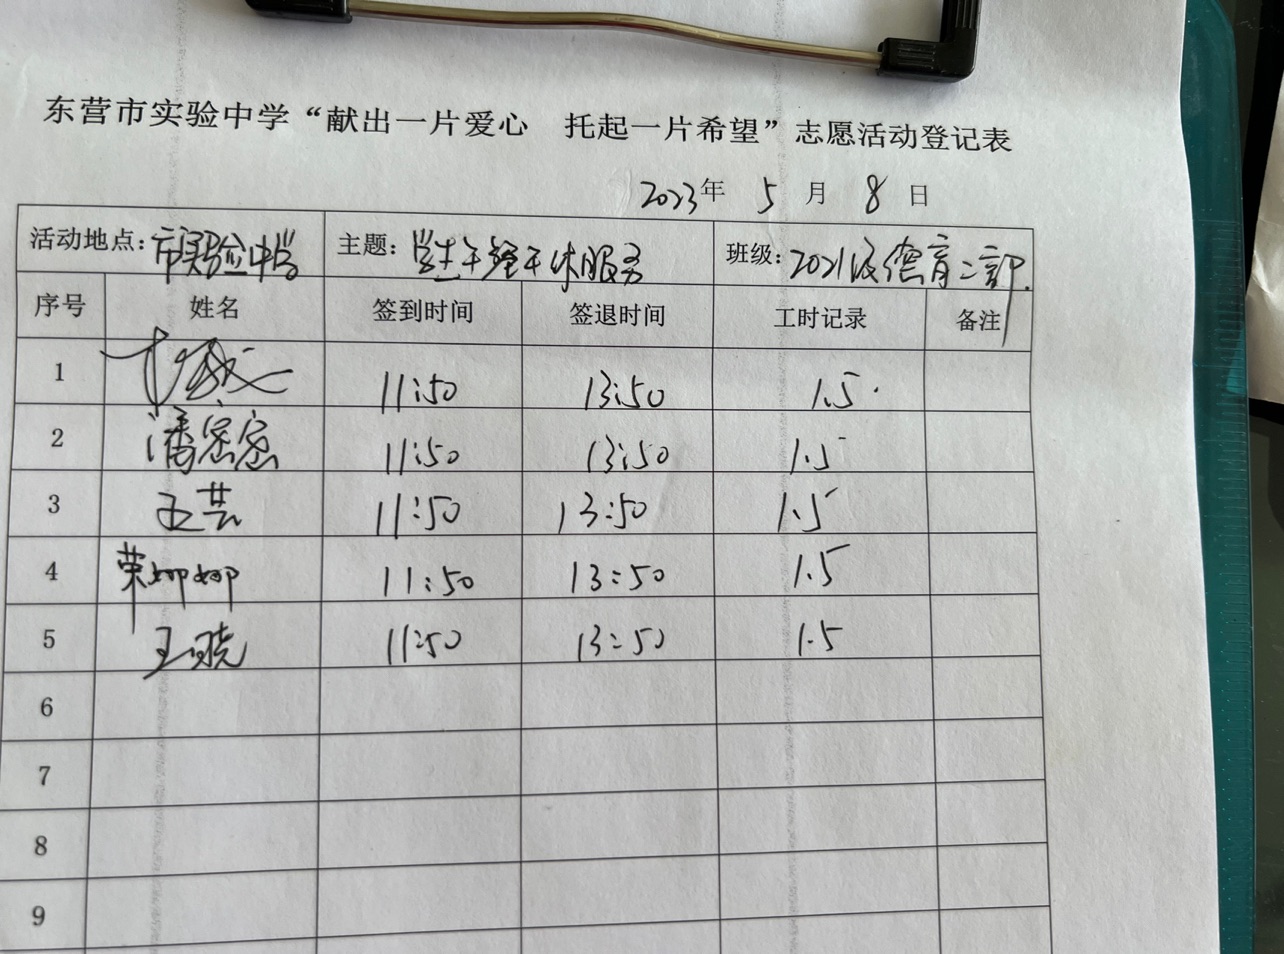 东营市实验中学“献出一片爱心 托起一片希望”志愿活动登记表
2023年 5 月 8 日
活动地点：市实验中学 主题：学生午餐午休服务 班级：2021级德育二部
序号 姓名 签到时间 签退时间 工时记录 备注
1 11:50 13:50 1.5
2 潘密密 11:50 13:50 1.5
3 王芸 11:50 13:50 1.5
4 荣柳柳 11:50 13:50 1.5
5 王晓 11:50 13:50 1.5
6
7
8
9